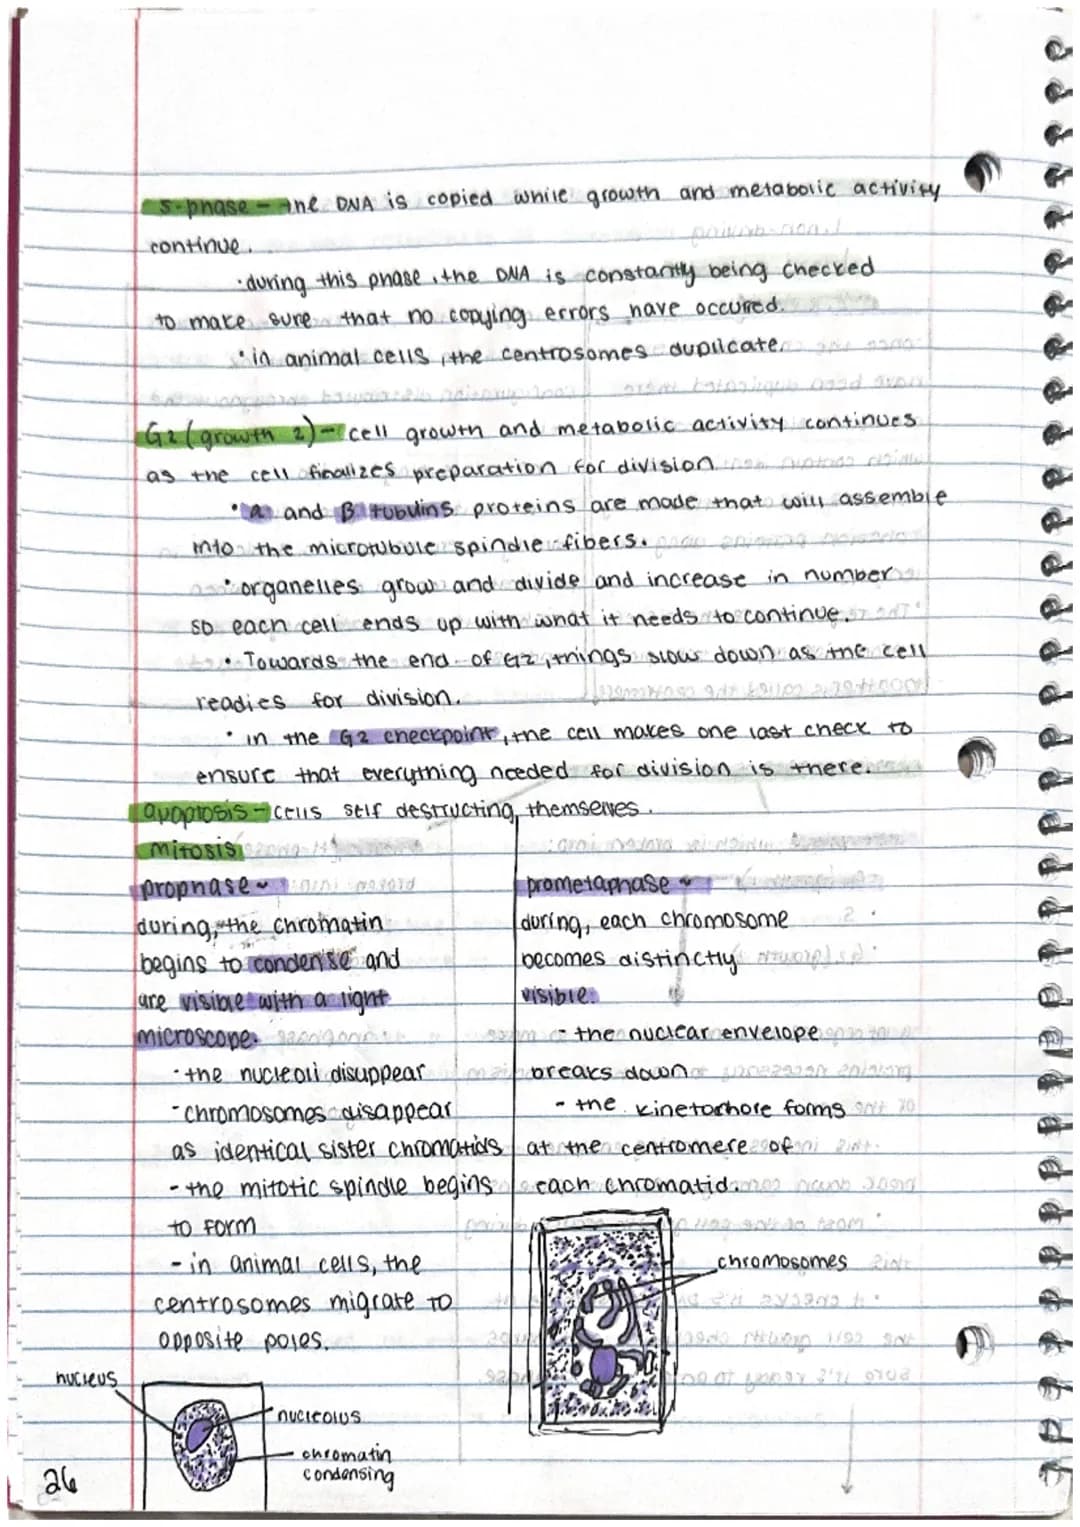 S-phase - the DNA is copied while growth and metabolic activity
continue.
• during this phase, the DNA is constantly being checked
to make sure that no copying errors have occured.
• in animal cells, the centrosomes duplicate.
G2 (growth 2) - cell growth and metabolic activity continues
as the cell finalizes preparation for division
• α and β tubulins proteins are made that will assemble
into the microtubule spindle fibers.
• organelles grow and divide and increase in number
so each cell ends up with what it needs to continue.
• Towards the end of G2, things slow down as the cell
readies for division.
• in the G2 checkpoint, the cell makes one last check to
ensure that everything needed for division is there.
apoptosis - cells self destructing themselves.
mitosis
prophase -
during, the chromatin
begins to condense and
are visible with a light
microscope.
- the nucleoli disuppear
- chromosomes disappear
as identical sister chromatids
- the mitotic spindle begins
to form
- in animal cells, the
centrosomes migrate to
opposite poles.
nucleus
nucleolus
chromatin
condensing
prometaphase -
during, each chromosome
becomes distinctly
visible.
- the nuclear envelope
breaks down
- the kinetochore forms
at the centromere of
each chromatid.
chromosomes
26